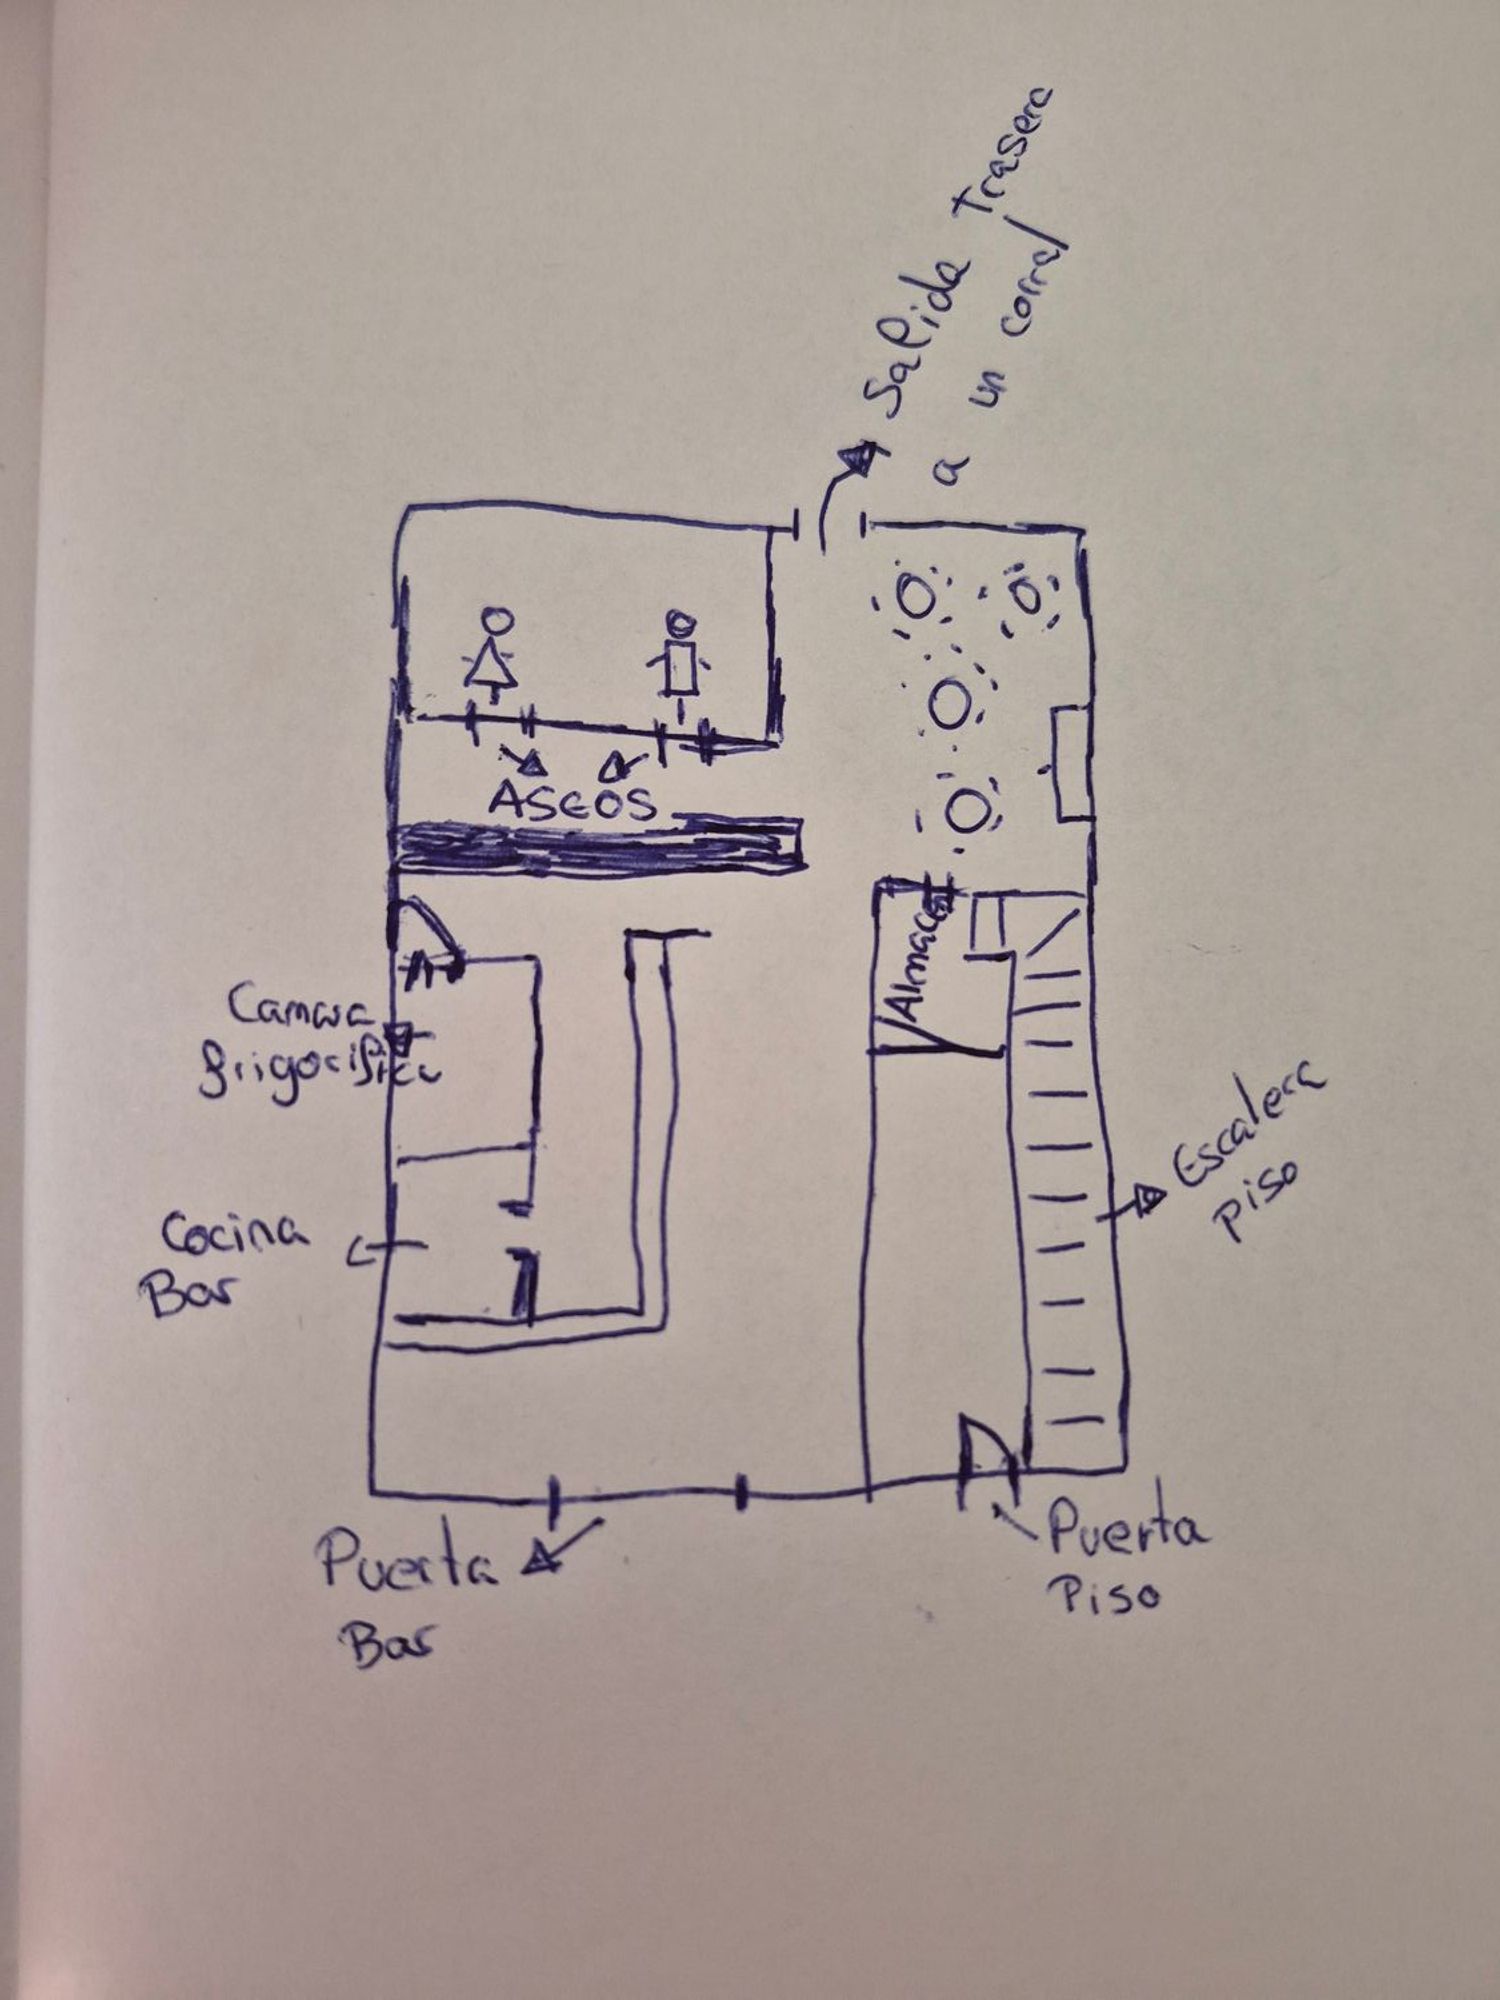 Salida Trasera
a un corral
ASEOS
Almacen
Camara
frigorifica
Escalera
piso
Cocina
Bar
Puerta
Bar
Puerta
Piso